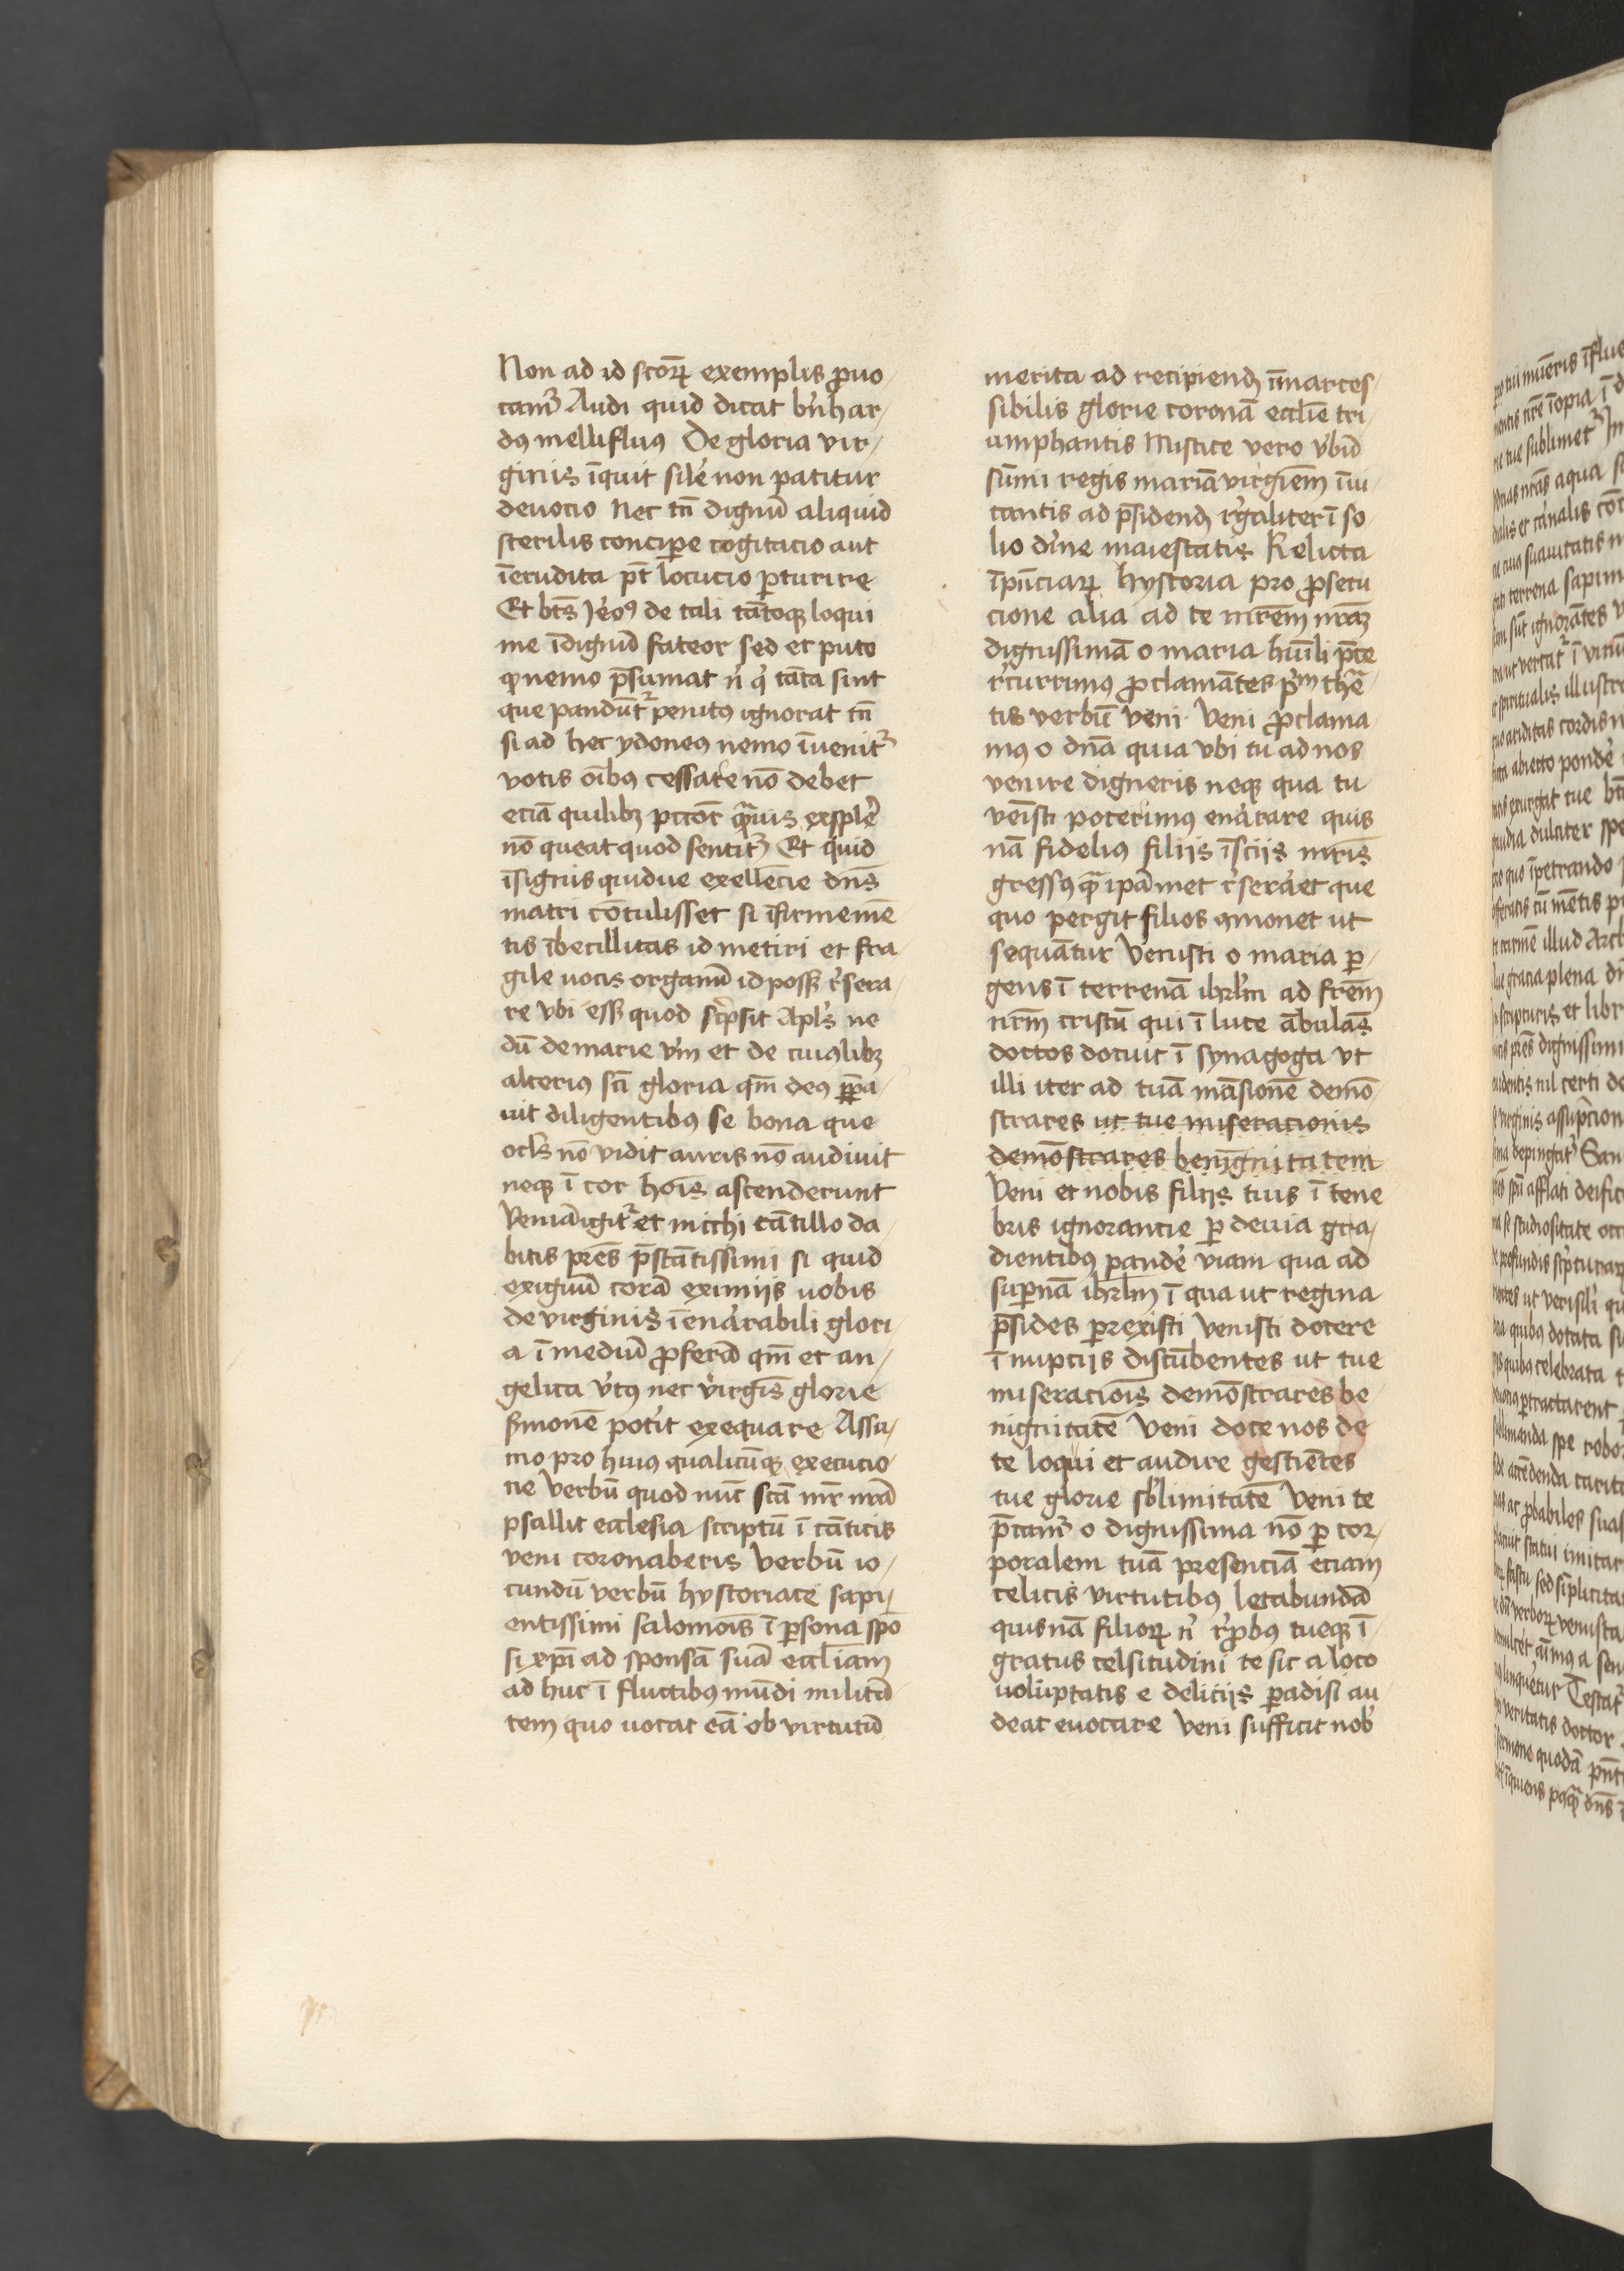 Non ad id sctoꝝ exemplis ꝓuo-
camᷣ Audi quid dicat bṅhar-
dꝯ mellifluꝯ De gloria vir-
ginis īquit silēe non patitur
deuocio Nec tn̄ dignū aliquid
sterilis concipe cogitacio aut
īerudita pt̄ locucio ꝑturire
Et bt̄s Jeroꝯ de tali tātoqꝫ loqui
me īdignū fateor sed et puto
ꝙ nemo p̄sumat nͥ qͥ tāta sint
que pandūtᷣ penitꝯ ignorat tn̄
si ad hec ydoneꝯ nemo īuenitᷣ
votis oībꝯ cessare nō debet
eciā quilibꝫ pctor̄ q̄uis explere
nō queat quod sentitᷣ Et quid
īsignis quidue exellēcie dn̄s
matri cōtulisset si īfirme mē
tis ībecillitas id metiri et fra-
gile uocis organū id possꝫ rͤsera-
re vbi essꝫ quod sc̄psit Apl̄s ne
dū de marie vͬm et de cuiꝯlibꝫ
alteriꝯ sc̄i gloria qm̄ deꝯ p̄pa-
uit diligentibꝯ se bona que
ocl̄s nō vidit auris nō audiuit
neqꝫ ī cor hoīs ascenderunt
Veniā igitᷣ et michi tātillo da-
bitis pres̄ p̄stātissimi si quid
exiguū corā eximiis uobis
de virginis ī enarrabili glori-
a ī mediū ꝓferā qm̄ et an-
gelica vͬtꝯ nec virgīs glorie
sͬmonē potͥit exequare Assu-
mo pro huiꝯ qualicūqꝫ execucio
ne Verbū quod nūc scā mr̄ nr̄a
psallit ecclesia scriptū ī cāticis
veni coronaberis Verbū io-
cundū verbū hystoriace sapi-
entissimi salomoīs ī ꝑsona spō
si xp̄i ad sponsā suā eccl̄iam
ad huc ī fluctibꝯ mūdi militā
tem quo uocat eā ob virtutū
merita ad recipiend ī̄marces-
sibilis glorie coronā eccl̄ie tri-
umphantis Mistice vero vͬbū
sūmi regis mariā virgīem īui-
tantis ad p̄sidend rͤgaliter ī so
lio dīne maiestatis Relicta
īpn̄ciaꝝ hystoria pro ꝓsecu
cione alia ad te mr̄em nr̄aꝫ
dignissimā o maria hūili p̄ce
rͤcurrimꝯ ꝓclamātes pͬm the
tis verbū veni Veni ꝓclama
mꝯ o dn̄a quia vbi tu ad nos
venire digneris neqꝫ qua tu
venīsti poterimꝯ enarrare quis
nā fideliꝯ filiis īsciis mr̄is
gressꝯ q̄ ipāmet rͤseraret que
quo pergit filios ꝯmonet ut
sequātur Venisti o maria ꝑ-
gens ī terrenā ihrl̄m ad frem̄
nrm̄ cristū qui ī luce ābulās
doctos docuit ī synagoga vt
illi iter ad tuā māsionē demō-
strares ut tue miseracionis
demōstrares benignitatem
Veni et nobis filiis tuis ī tene
bris ignorancie ꝑ deuia gra-
dientibꝯ pandere viam qua ad
suꝑnā ihrl̄m ī qua ut regina
p̄sides ꝑrexisti Venisti docere
ī nuptiis discūbentes ut tue
miseracioīs demōstrares be
nignitatē Veni doce nos de
te loqui et audire gestiētes
tue glorie sb̄limitatē Veni te
p̄camᷣ o dignissima nō ꝑ cor-
poralem tuā presenciā eciam
celicis virtutibꝯ letabundā
quisnā filioꝝ nͥ rͤꝓbꝯ tueqꝫ ī
gratus celsitudini te sic a loco
uoluptatis e deliciis ꝑadisi au
deat euocare Veni sufficit nob